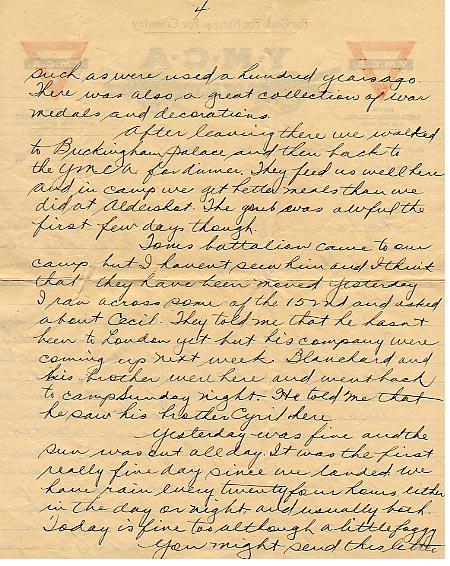 4
such as were used a hundred years ago.
There was also a great collection of war
medals and decorations.
After leaving there we walked
to Buckingham Palace and then back to
the Y.M.C.A. for dinner. They feed us well here
and in camp we get better meals than we
did at Aldershot. The grub was awful the
first few days though.
Toms battalion came to our
camp but I havent seen him and I think
that they have been moved yesterday
I ran across some of the 152nd and asked
about Cecil. They told me that he hasn't
been to London yet but his company were
coming up next week. Blanchard and
his brother were here and went back
to camp Sunday night. He told me that
he saw his brother Cyril here
Yesterday was fine and the
sun was out all day. It was the first
really fine day since we landed. We
have rain every twenty four hours either
in the day or night and usually both.
Today is fine too although a little foggy
You might send this letter